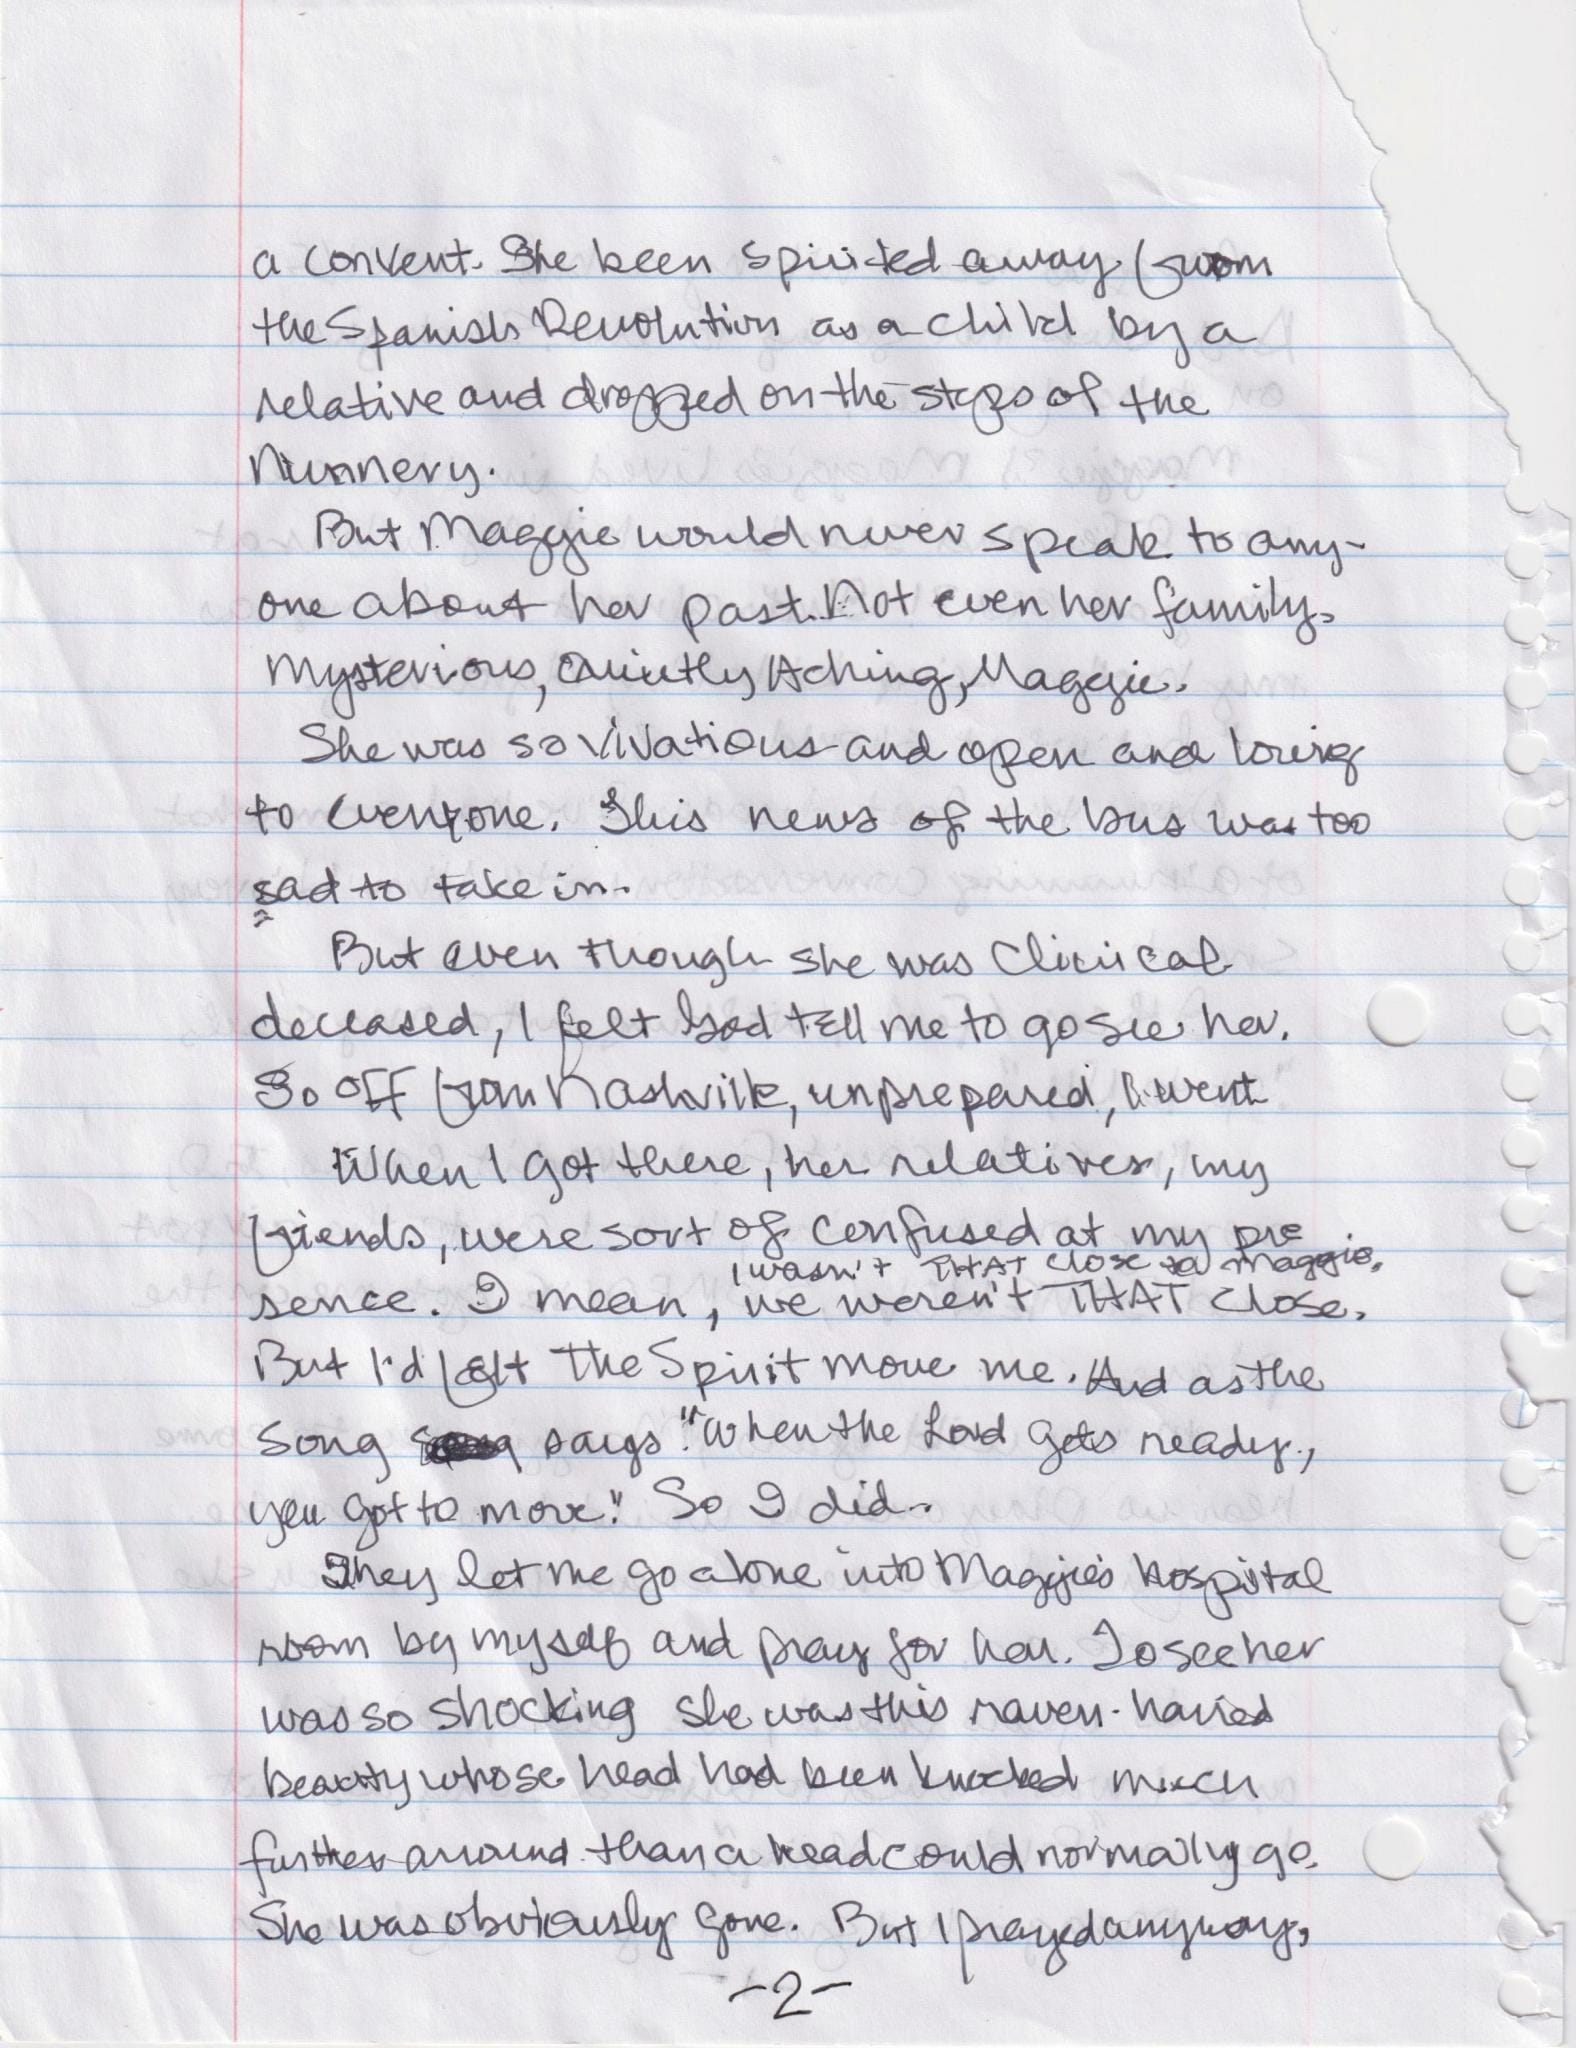 a convent. She been spirited away from
the Spanish Revolution as a child by a
relative and dropped on the steps of the
Nunnery.
But Maggie would never speak to any-
one about her past. Not even her family.
Mysterious, Quietly Aching, Maggie.
She was so vivatious and open and loving
to everyone. This news of the bus was too
sad to take in.
But even though she was Clinical
deceased, I felt God tell me to go see her.
So off from Nashville, unprepared, I went
When I got there, her relatives, my
friends, were sort of confused at my pre
I wasn't THAT close to Maggie.
sence. I mean, we weren't THAT close.
But I'd felt the Spirit move me. And as the
Song says "When the Lord gets ready,
you got to move." So I did.
They let me go alone into Maggie's hospital
room by myself and pray for her. To see her
was so shocking She was this raven-haired
beauty whose head had been knocked much
further around than a head could normally go.
She was obviously gone. But I prayed anyway,
-2-